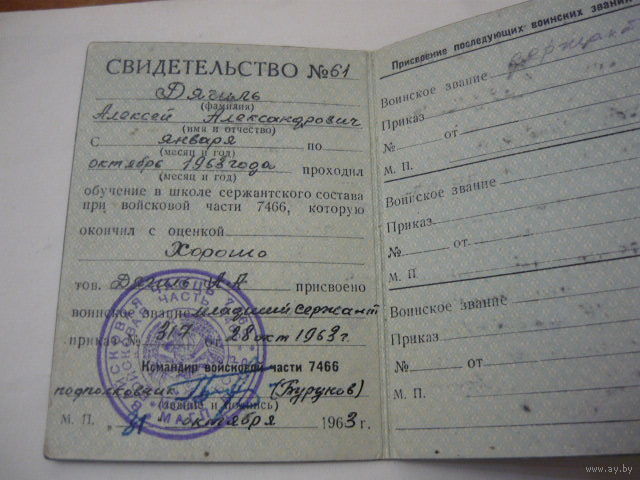 СВИДЕТЕЛЬСТВО №61
Дягиль
(фамилия)
Алексей Александрович
(имя и отчество)
С января по
(месяц и год)
октябрь 1963 года проходил
(месяц и год)
обучение в школе сержантского состава
при войсковой части 7466, которую
окончил с оценкой
Хорошо
тов. Дягиль А.А присвоено
воинское звание младший сержант
приказ № 317 от 28 окт 1963 г.
Командир войсковой части 7466
подполковник (Бурунов)
(звание и подпись)
М. П. „31 октября 1963 г.
ВОЙСКОВАЯ ЧАСТЬ
Присвоение последующих воинских званий
Воинское звание сержант
Приказ
№ от
М. П.
Воинское звание
Приказ
№ от
М. П.
Воинское звание
Приказ
№ от
М. П.
www.ay.by